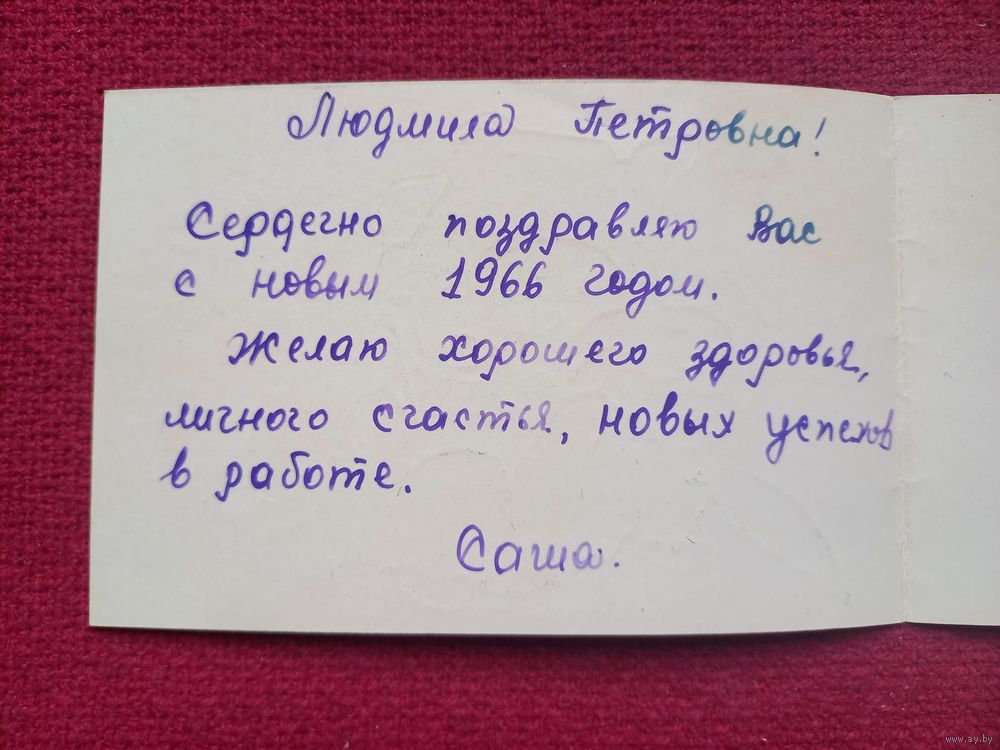 Людмила Петровна!
Сердечно поздравляю Вас
с новым 1966 годом.
Желаю хорошего здоровья,
личного счастья, новых успехов
в работе.
Саша.
www.ay.by